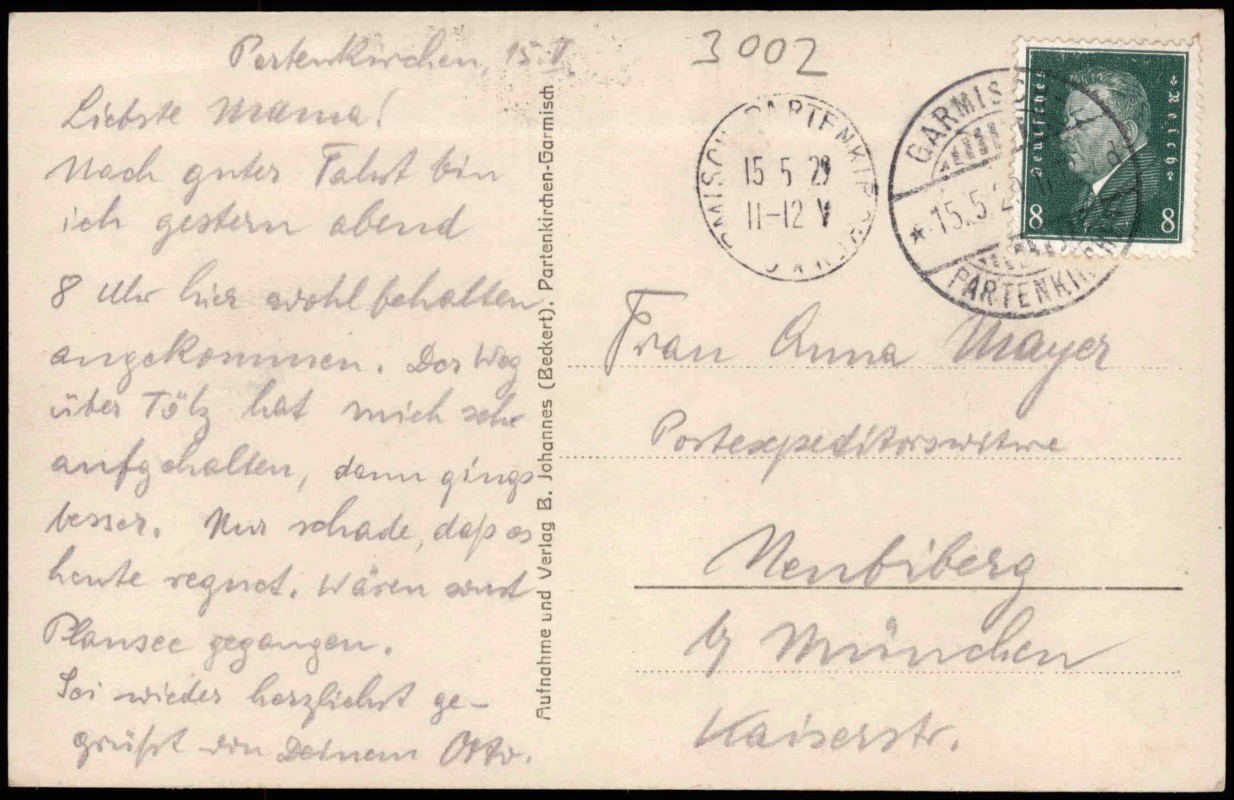 Partenkirchen, 15.V.
Liebste Mama!
Nach guter Fahrt bin
ich gestern abend
8 Uhr hier wohlbehalten
angekommen. Der Weg
über Tölz hat mich sehr
aufgehalten, dann gings
besser. Nur schade, daß es
heute regnet. Wären sonst
Plansee gegangen.
Sei wieder herzlichst ge-
grüßt von Deinem Otto.
Aufnahme und Verlag B. Johannes (Beckert). Partenkirchen-Garmisch
3002
GARMISCH PARTENKIRCHEN
15 5 29
11-12 V
GARMISCH
* 15.5.29
PARTENKIRCHEN
Deutsches Reich
8 8
Frau Anna Mayer
Postexpeditorswitwe
Neubiberg
b/ München
Kaiserstr.